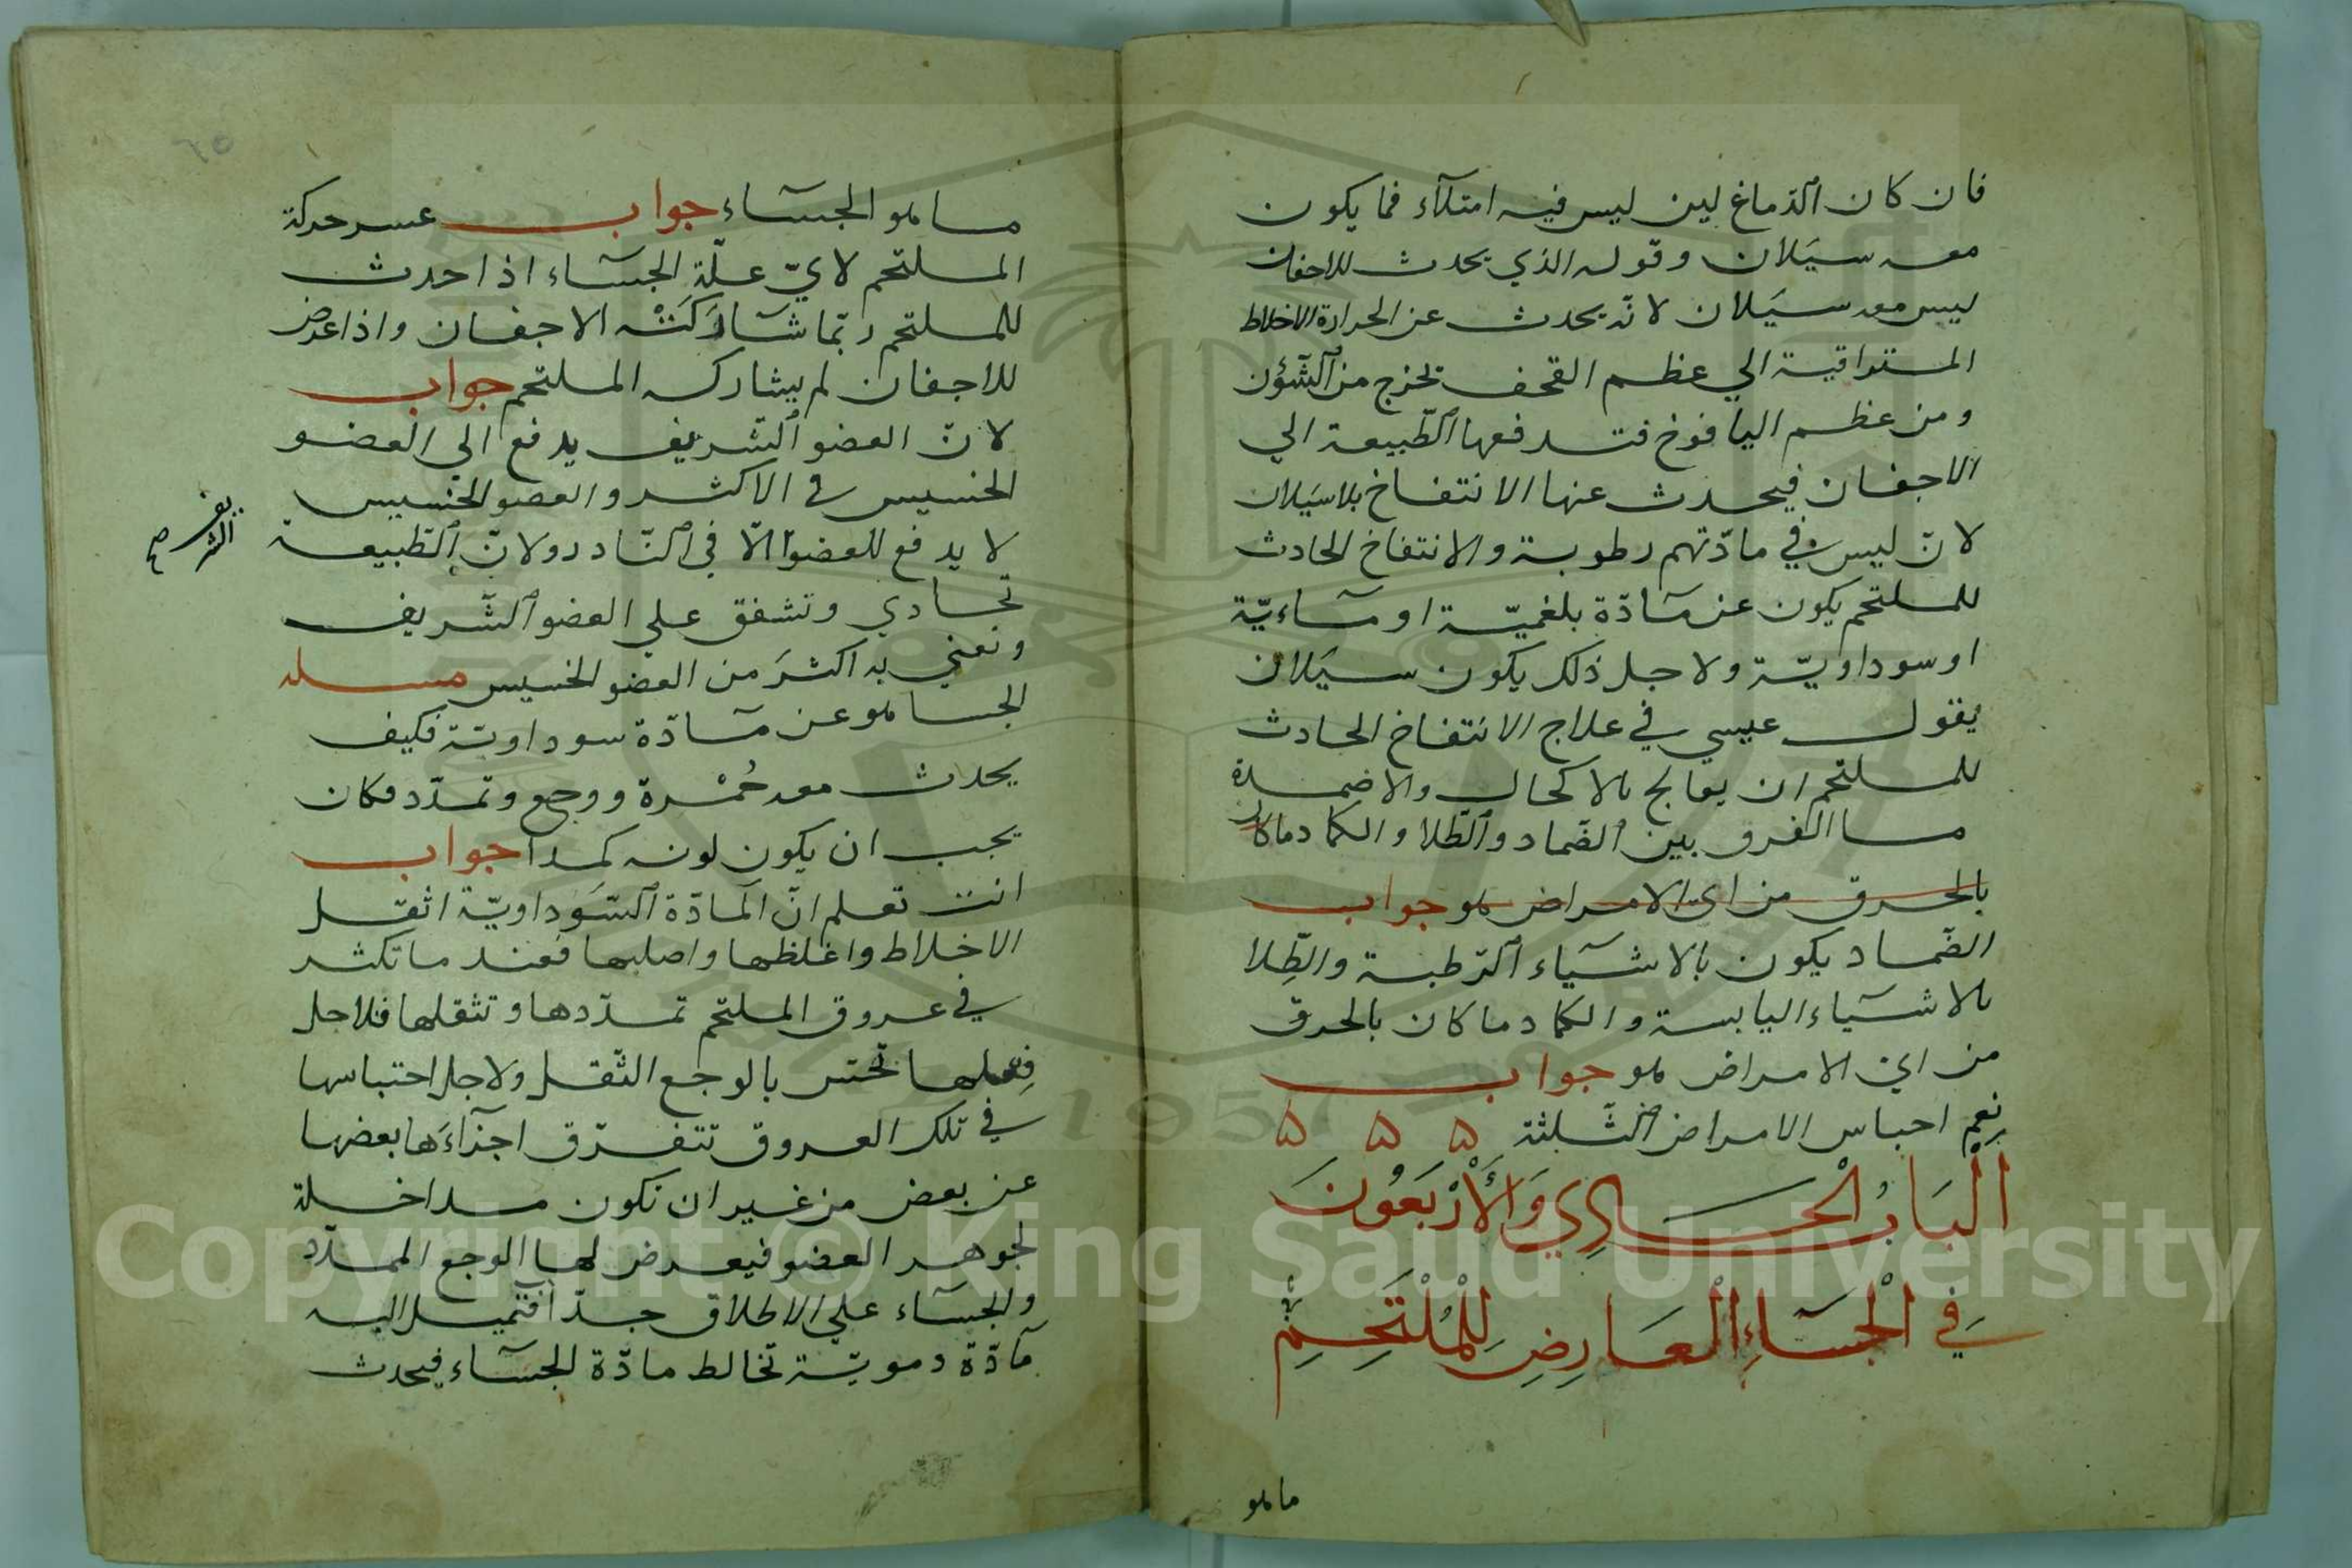 فان كان الدماغ لين ليس فيه امتلآء فما يكون
معه سيلان وقوله الذي يحدث للاجفان
ليس معه سيلان لانه يحدث عن الحرارة الاخلاط
المتراقية الي عظم القحف تخرج من الشؤن
ومن عظم اليافوخ فتدفعها الطبيعة الي
الاجفان فيحدث عنها الانتفاخ بلا سيلان
لانّ ليس في مادّتهم رطوبة والانتفاخ الحادث
للملتحم يكون عن مآدّة بلغميّة او مآءيّة
او سوداويّة ولاجل ذلك يكون سيلان
يقول عيسي في علاج الانتفاخ الحادث
للملتحم ان يعالج بالاكحال والاضمدة
ما الفرق بين الضماد والطّلا والكماد وما كان
بالخرق من اى الامراض هو جواب
الضّماد يكون بالاشيآء الرّطبة والطِّلا
بالاشيآء اليابسة والكماد ما كان بالخرق
من اي الامراض هو جواب
يعم اجناس الامراض الثّلثة ۵ ۵ ۵
اَلْبَابُ الْحَادِي وَالْأَرْبَعُونَ
فِي الْجَسَآءِ الْعَارِضِ لِلْمُلْتَحِمِ
ما هو
ما هو الجسآء جواب عسر حركة
الملتحم لايّ علّة الجسآء اذا حدث
للملتحم ربّما شَارَكَتْه الاجفان واذا عرض
للاجفان لم يشاركه الملتحم جواب
لانّ العضو الشّريف يدفع الي العضو
الخسيس في الاكثر والعضو الخسيس
لا يدفع للعضو الّا في النّادر ولانّ الطّبيعة
الشريف صح
تحادي وتشفق علي العضو الشّريف
وتعني به اكثرَ من العضو الخسيس مسله
الجسا هو عن مآدّة سوداويّة فكيف
يحدث معه حُمْرة ووجع وتمدّد وكان
يجب ان يكون لونه كمداً جواب
انت تعلم انّ المادّة السّوداويّة اثقل
الاخلاط واغلظها واصلبها فعند ما تكثر
في عروق الملتحم تمدّدها وتثقلها فلاجل
فِعلها تحسّ بالوجع الثّقل ولاجل احتباسها
في تلك العروق تتفرّق اجزآءَها بعضها
عن بعض من غير ان تكون مداخلة
لجوهر العضو فيعرض لها الوجع الممدّد
والجسآء علي الاطلاق جدّاً فتميل اليه
مآدّة دمويّة تخالط مادّة الجسآء فيحدث
Copyright © King Saud University
1957